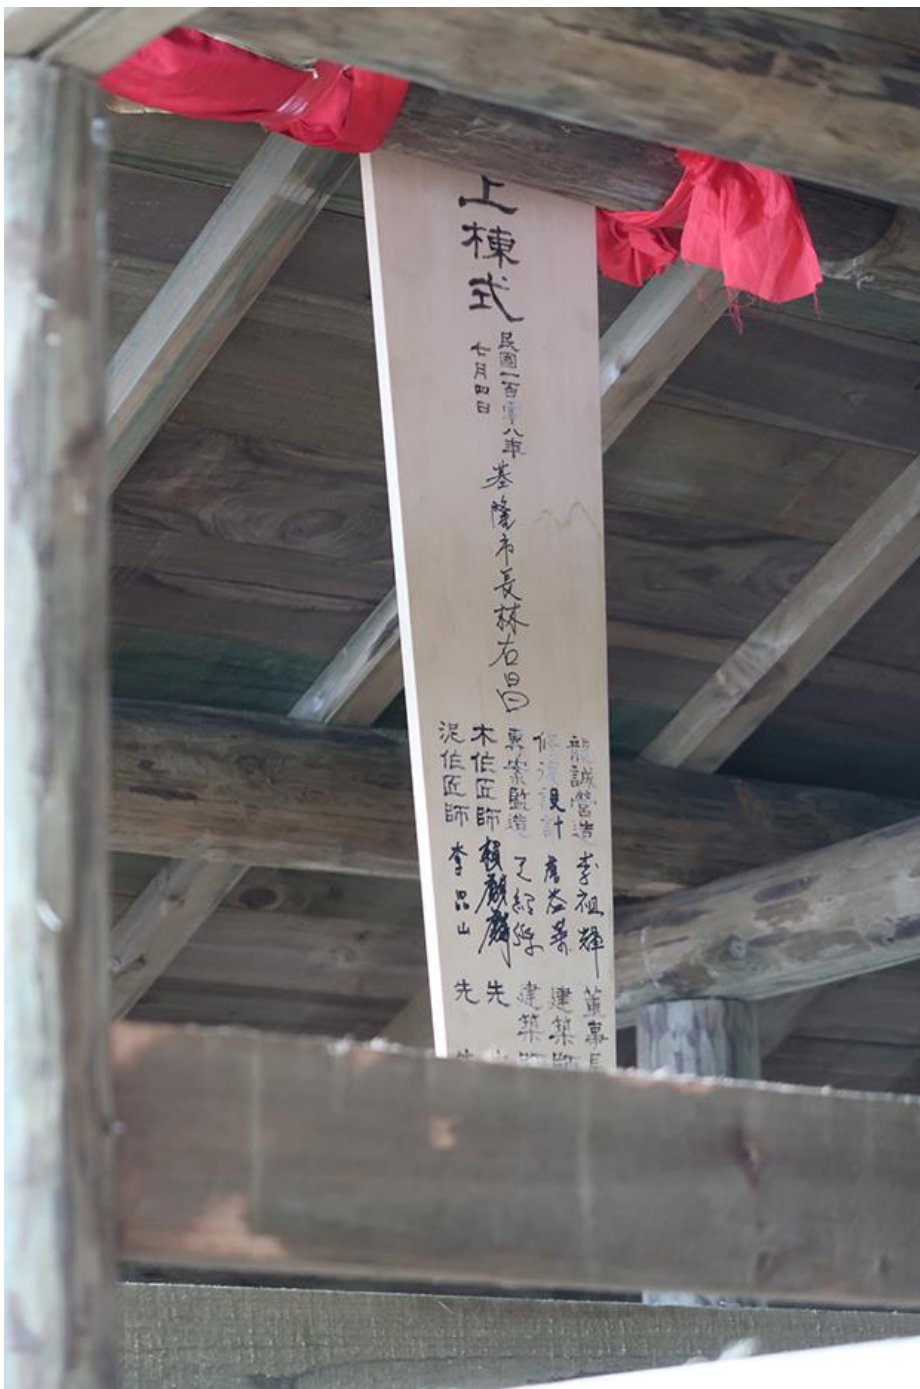 上棟式
民國一百零八年
七月四日
基隆市長林右昌
龍誠營造 李祖輝 董事長
修復設計 建築師
專案監造 建築師
木作匠師 賴麒麟 先
泥作匠師 李品山 先